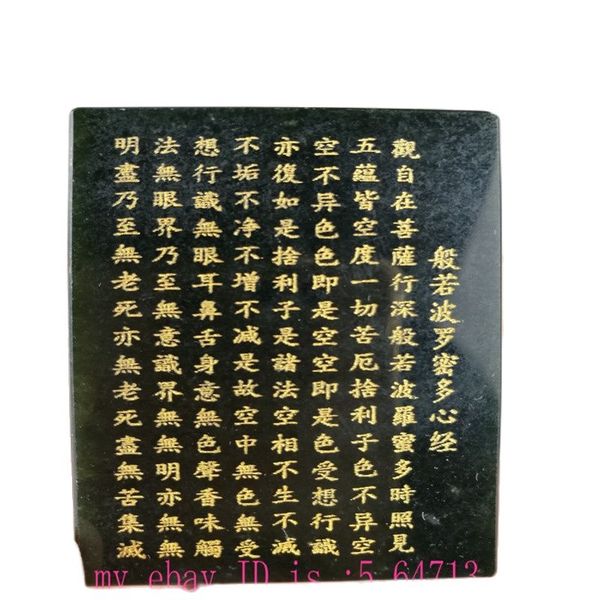 般若波罗密多心经
觀自在菩薩行深般若波羅蜜多時照見
五蘊皆空度一切苦厄捨利子色不异空
空不异色色即是空空即是色受想行識
亦復如是捨利子是諸法空相不生不滅
不垢不净不增不减是故空中無色無受
想行識無眼耳鼻舌身意無色聲香味觸
法無眼界乃至無意識界無無明亦無無
明盡乃至無老死亦無老死盡無苦集滅
my ebay ID is :5_64713